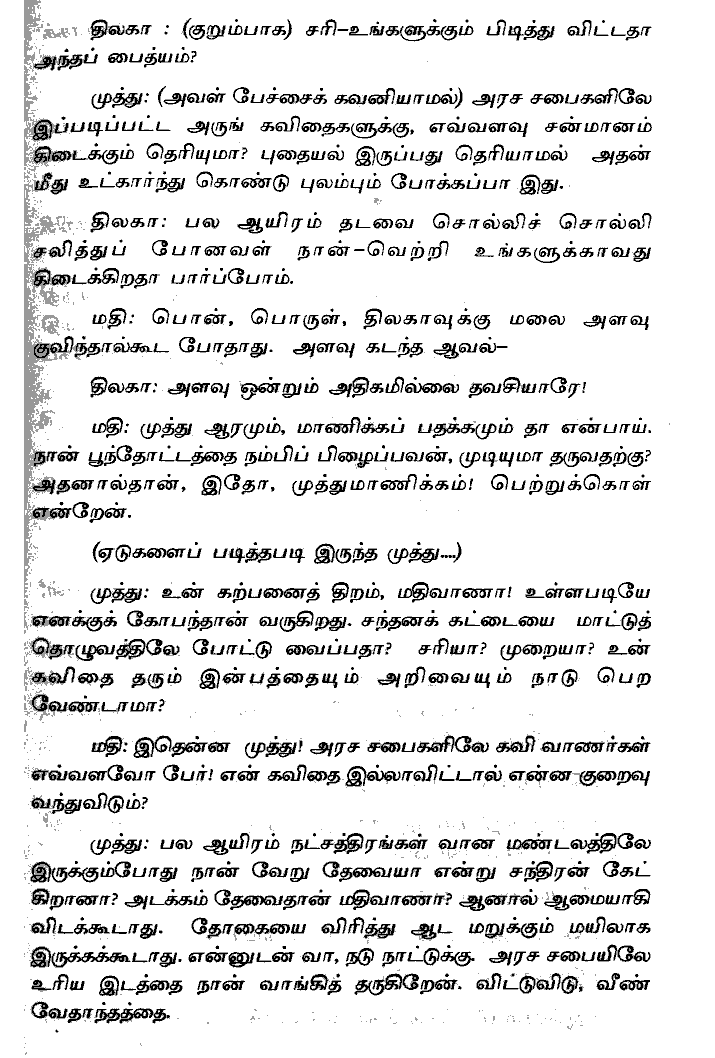 திலகா : (குறும்பாக) சரி–உங்களுக்கும் பிடித்து விட்டதா
அந்தப் பைத்யம்?
முத்து: (அவள் பேச்சைக் கவனியாமல்) அரச சபைகளிலே
இப்படிப்பட்ட அருங் கவிதைகளுக்கு, எவ்வளவு சன்மானம்
கிடைக்கும் தெரியுமா? புதையல் இருப்பது தெரியாமல் அதன்
மீது உட்கார்ந்து கொண்டு புலம்பும் போக்கப்பா இது.
திலகா: பல ஆயிரம் தடவை சொல்லிச் சொல்லி
சலித்துப் போனவள் நான்–வெற்றி உங்களுக்காவது
கிடைக்கிறதா பார்ப்போம்.
மதி: பொன், பொருள், திலகாவுக்கு மலை அளவு
குவிந்தால்கூட போதாது. அளவு கடந்த ஆவல்–
திலகா: அளவு ஒன்றும் அதிகமில்லை தவசியாரே!
மதி: முத்து ஆரமும், மாணிக்கப் பதக்கமும் தா என்பாய்.
நான் பூந்தோட்டத்தை நம்பிப் பிழைப்பவன், முடியுமா தருவதற்கு?
அதனால்தான், இதோ, முத்துமாணிக்கம்! பெற்றுக்கொள்
என்றேன்.
(ஏடுகளைப் படித்தபடி இருந்த முத்து....)
முத்து: உன் கற்பனைத் திறம், மதிவாணா! உள்ளபடியே
எனக்குக் கோபந்தான் வருகிறது. சந்தனக் கட்டையை மாட்டுத்
தொழுவத்திலே போட்டு வைப்பதா? சரியா? முறையா? உன்
கவிதை தரும் இன்பத்தையும் அறிவையும் நாடு பெற
வேண்டாமா?
மதி: இதென்ன முத்து! அரச சபைகளிலே கவி வாணர்கள்
எவ்வளவோ பேர்! என் கவிதை இல்லாவிட்டால் என்ன குறைவு
வந்துவிடும்?
முத்து: பல ஆயிரம் நட்சத்திரங்கள் வான மண்டலத்திலே
இருக்கும்போது நான் வேறு தேவையா என்று சந்திரன் கேட்
கிறானா? அடக்கம் தேவைதான் மதிவாணா? ஆனால் ஆமையாகி
விடக்கூடாது. தோகையை விரித்து ஆட மறுக்கும் மயிலாக
இருக்கக்கூடாது. என்னுடன் வா, நடு நாட்டுக்கு. அரச சபையிலே
உரிய இடத்தை நான் வாங்கித் தருகிறேன். விட்டுவிடு, வீண்
வேதாந்தத்தை.